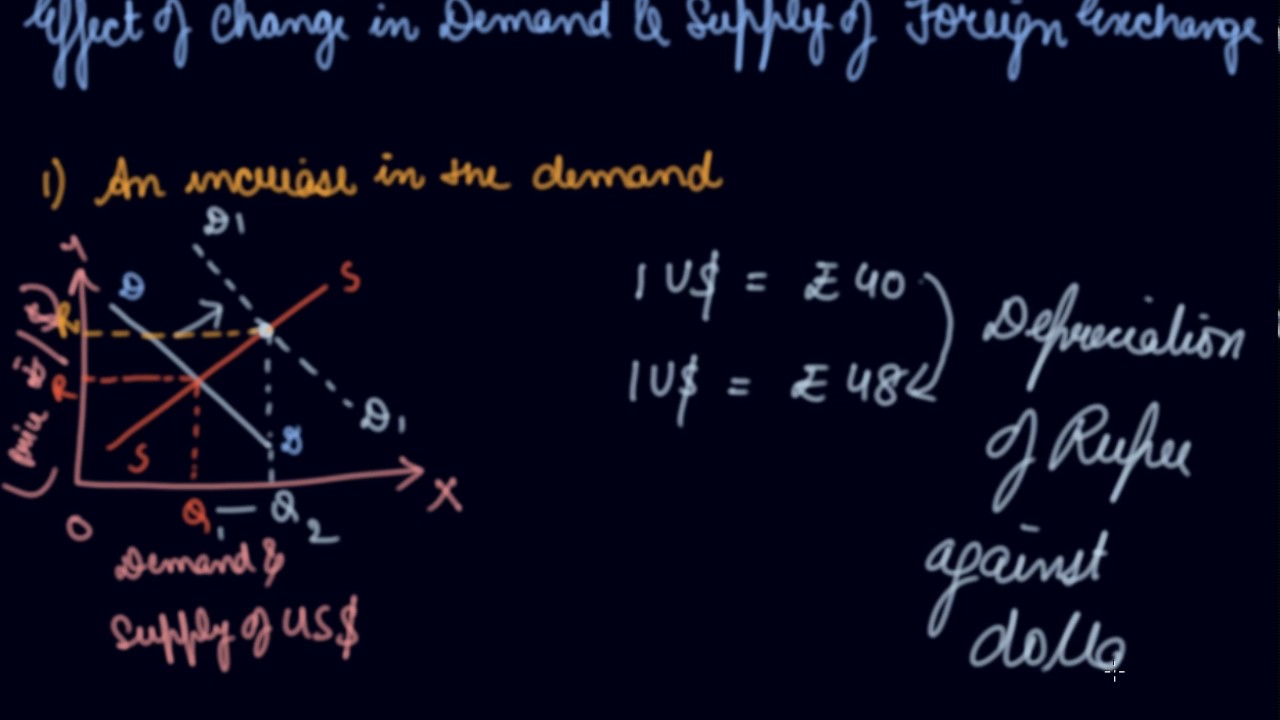 Effect of Change in Demand & Supply of Foreign Exchange
1) An increase in the demand
D1
Y
D
S
R
R
1 U$ = ₹ 40
1 U$ = ₹ 48
Depreciation
of Rupee
against
dolla
D1
D
S
(Price
X
O
Q1 — Q2
Demand &
Supply of US$